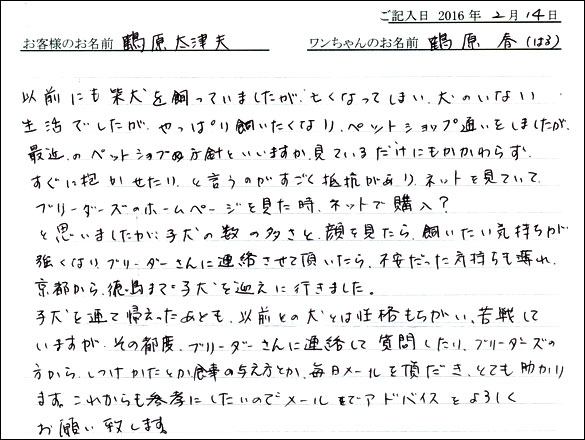 ご記入日 2016年2月14日
お客様のお名前 鶴原太津夫 ワンちゃんのお名前 鶴原春(はる)
以前にも柴犬を飼っていましたが、亡くなってしまい、犬のいない
生活でしたが、やっぱり飼いたくなり、ペットショップ通いをしましたが、
最近のペットショップの方針といいますか、見ているだけにもかかわらず、
すぐに抱かせたり、と言うのがすごく抵抗があり、ネットを見ていて、
ブリーダーズのホームページを見た時、ネットで購入?
と思いましたが、子犬の数の多さと、顔を見たら、飼いたい気持ちが
強くなり、ブリーダーさんに連絡させて頂いたら、不安だった気持ちも薄れ、
京都から、徳島まで子犬を迎えに行きました。
子犬を連て帰えったあとも、以前との犬とは性格もちがい、苦戦して
いますが、その都度、ブリーダーさんに連絡して質問したり、ブリーダーズの
方から、しつけかたとか食事の与え方とか、毎日メールを頂だき、とても助かり
ます。これからも参考にしたいのでメールでアドバイスをよろしく
お願い致します。